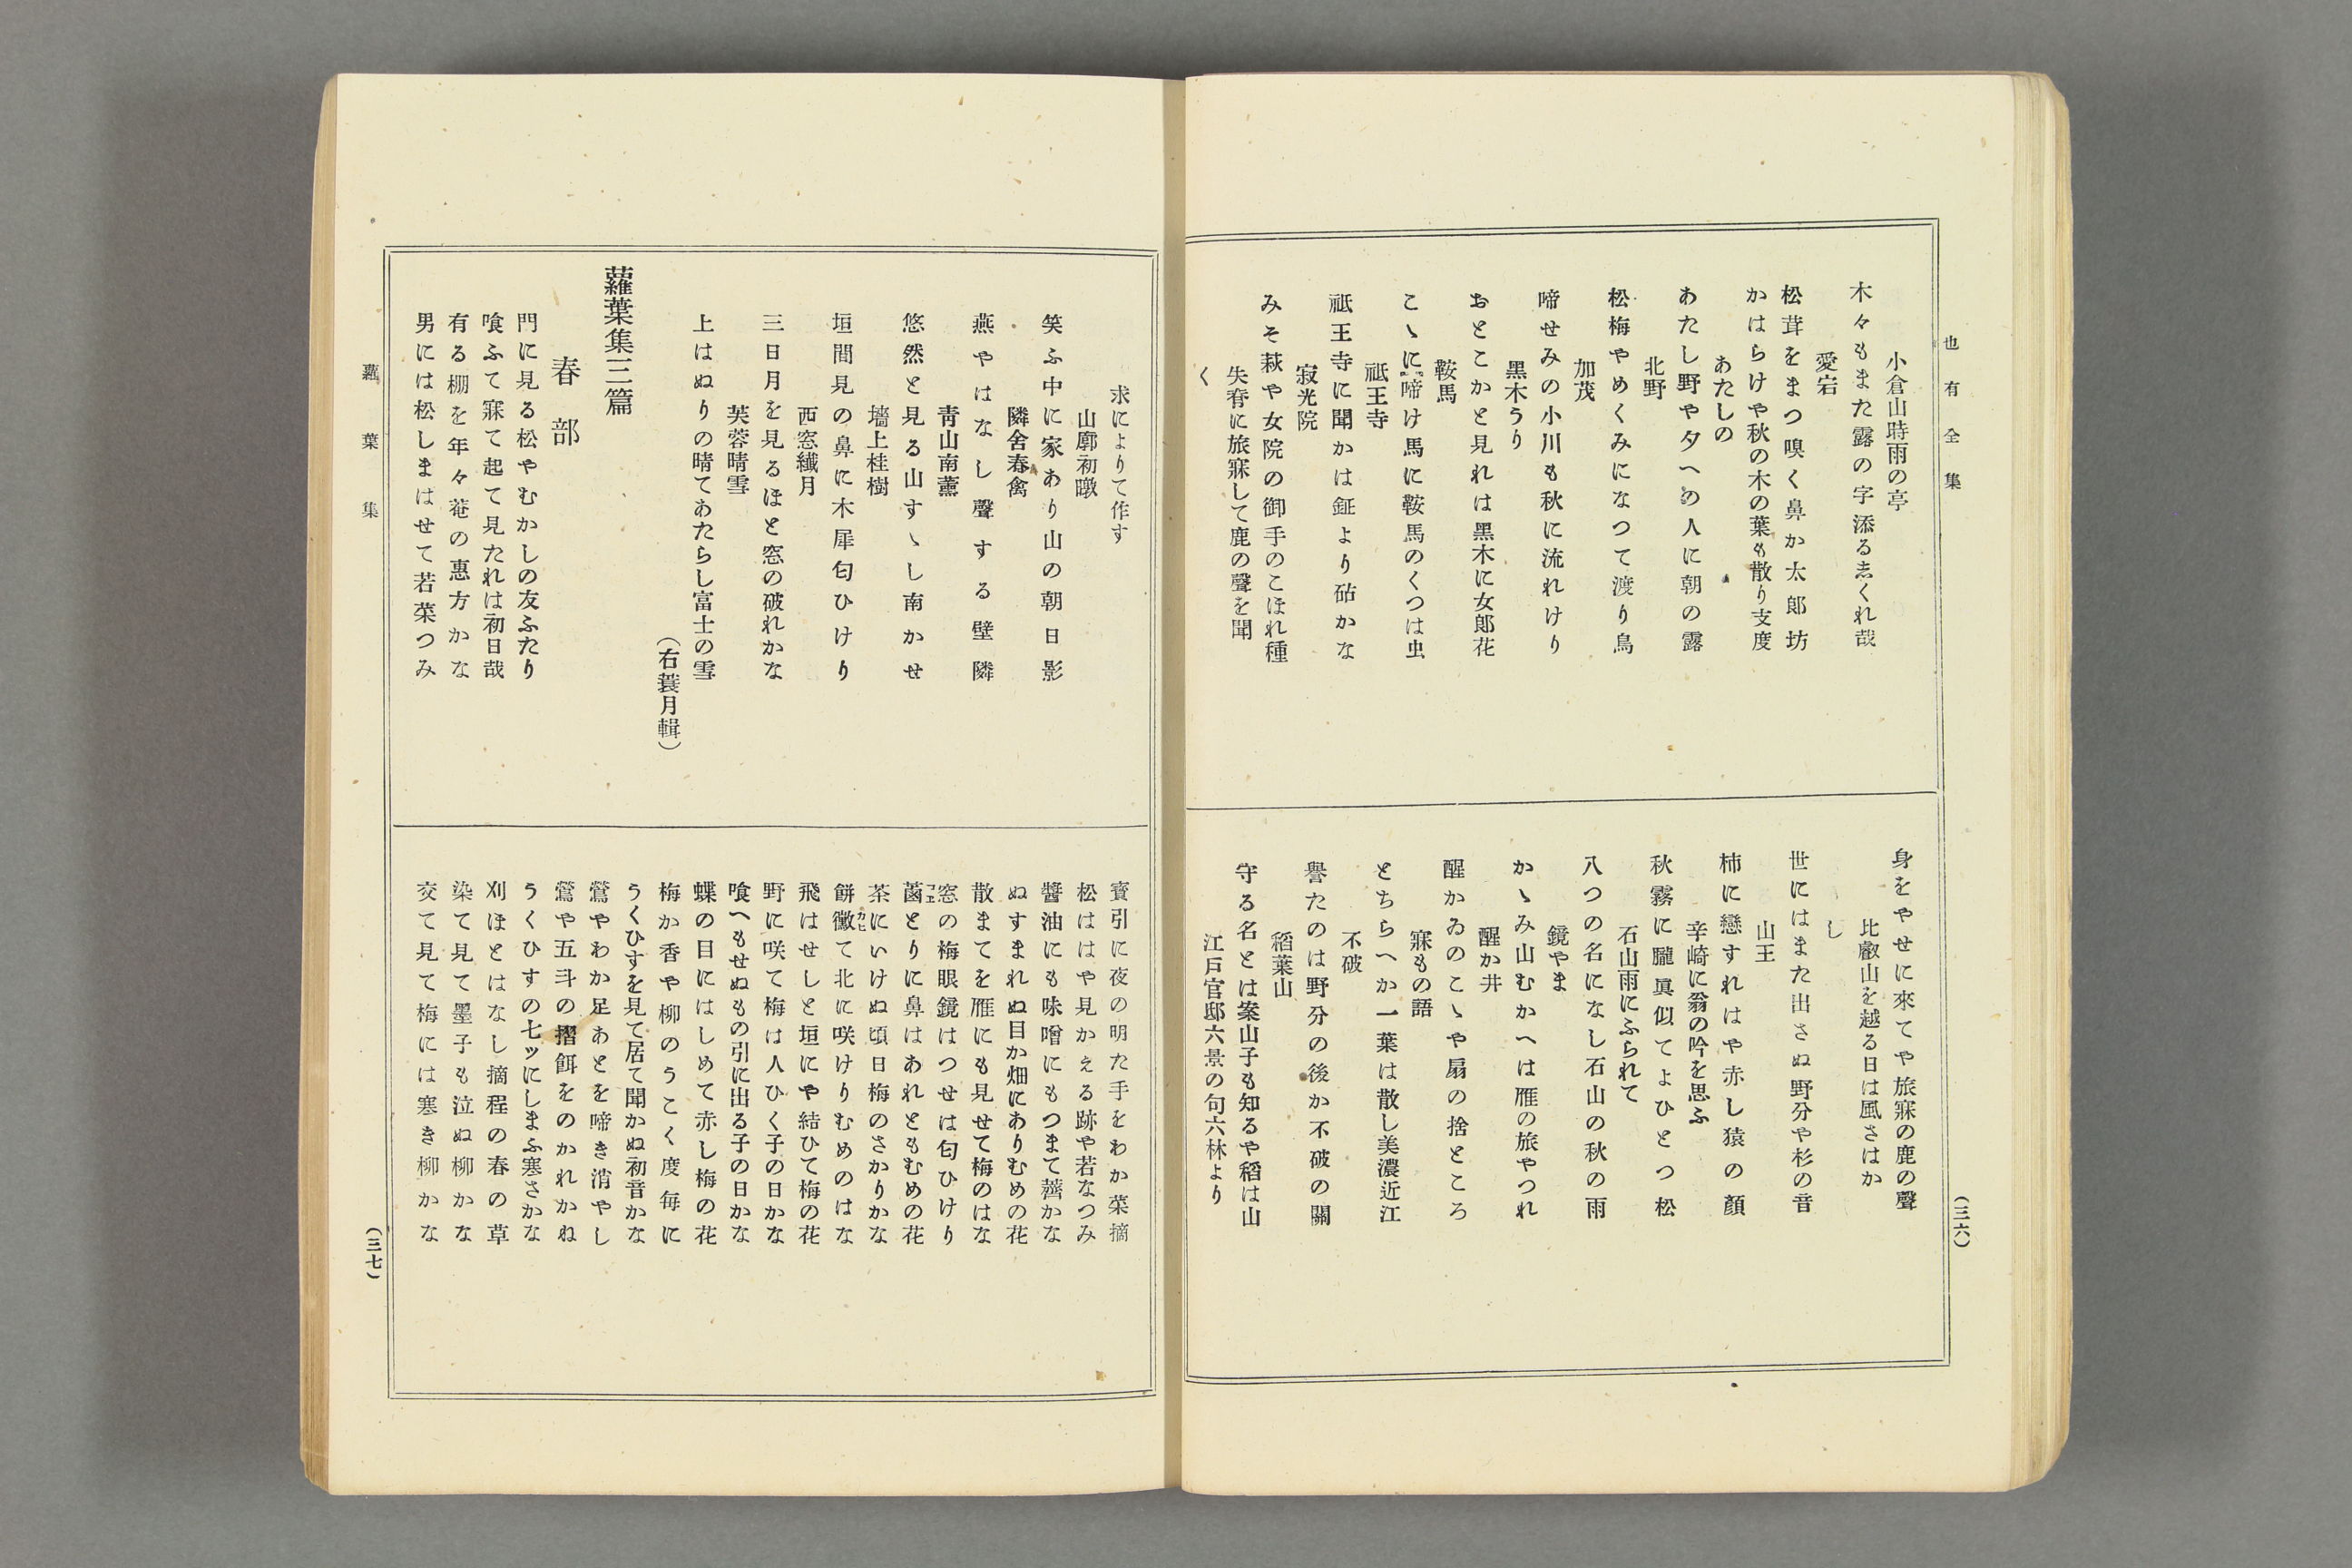 也有全集
小倉山時雨の亭
木々もまた露の字添るゑくれ哉
愛宕
松茸をまつ嗅く鼻か太郎坊
かはらけや秋の木の葉も散り支度
あたしの
あたし野や夕への人に朝の露
北野
松梅やめくみになつて渡り鳥
加茂
啼せみの小川も秋に流れけり
黒木うり
おとこかと見れは黒木に女郎花
鞍馬
こゝに啼け馬に鞍馬のくつは虫
祗王寺
祗王寺に聞かは鉦より砧かな
寂光院
みそ萩や女院の御手のこほれ種
失脊に旅寐して鹿の聲を聞
く
身をやせに來てや旅寐の鹿の聲
比叡山を越る日は風さはか
し
世にはまた出さぬ野分や杉の音
山王
柿に戀すれはや赤し猿の顏
辛崎に翁の吟を思ふ
秋霧に朧眞似てよひとつ松
石山雨にふられて
八つの名になし石山の秋の雨
鏡やま
かゝみ山むかへは雁の旅やつれ
醒か井
醒かゐのこゝや扇の捨ところ
寐もの語
とちらへか一葉は散し美濃近江
不破
譽たのは野分の後か不破の關
稻葉山
守る名とは案山子も知るや稻は山
江戸官邸六景の句六林より
(三六)
求によりて作す
山廓初暾
笑ふ中に家あり山の朝日影
隣舍春禽
燕やはなし聲する壁隣
靑山南薰
悠然と見る山すゝし南かせ
墻上桂樹
垣間見の鼻に木犀匂ひけり
西窓纎月
三日月を見るほと窓の破れかな
芙蓉晴雪
上はぬりの晴てあたらし富士の雪
(右蓑月輯)
蘿葉集三篇
春部
門に見る松やむかしの友ふたり
喰ふて寐て起て見たれは初日哉
有る棚を年々菴の惠方かな
男には松しまはせて若菜つみ
寳引に夜の明た手をわか菜摘
松ははや見かえる跡や若なつみ
醬油にも味噌にもつまて薺かな
ぬすまれぬ目か畑にありむめの花
散まてを雁にも見せて梅のはな
窓の梅眼鏡はつせは匂ひけり
菡とりに鼻はあれともむめの花
茶にいけぬ頃日梅のさかりかな
餅黴て北に咲けりむめのはな
飛はせしと垣にや結ひて梅の花
野に咲て梅は人ひく子の日かな
喰へもせぬもの引に出る子の日かな
蝶の目にはしめて赤し梅の花
梅か香や柳のうこく度毎に
うくひすを見て居て聞かぬ初音かな
鶯やわか足あとを啼き消やし
鶯や五斗の摺餌をのかれかね
うくひすの七ッにしまふ寒さかな
刈ほとはなし摘程の春の草
染て見て墨子も泣ぬ柳かな
交て見て梅には寒き柳かな
蘿葉集
(三七)